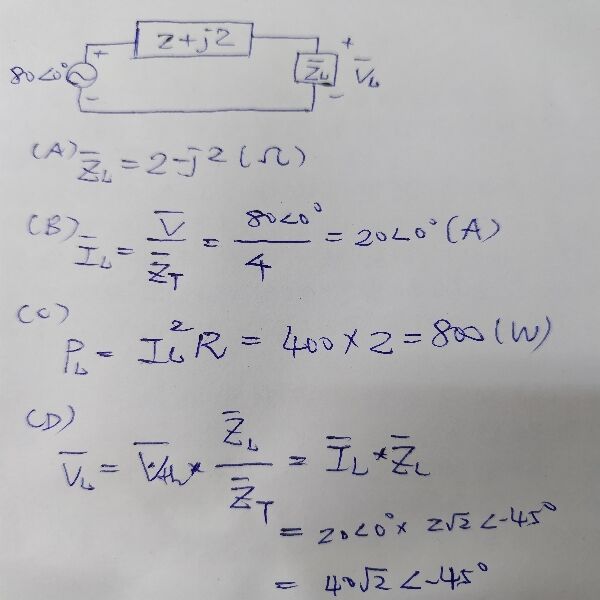 Z+j2
80∠0° + - Z̄L + - V̄L
(A) Z̄L = 2-j2 (Ω)
(B) ĪL = V̄/Z̄T = 80∠0°/4 = 20∠0° (A)
(C)
PL = IL²R = 400×2 = 800 (W)
(D)
V̄L = V̄th × Z̄L/Z̄T = ĪL * Z̄L
= 20∠0° × 2√2∠-45°
= 40√2∠-45°